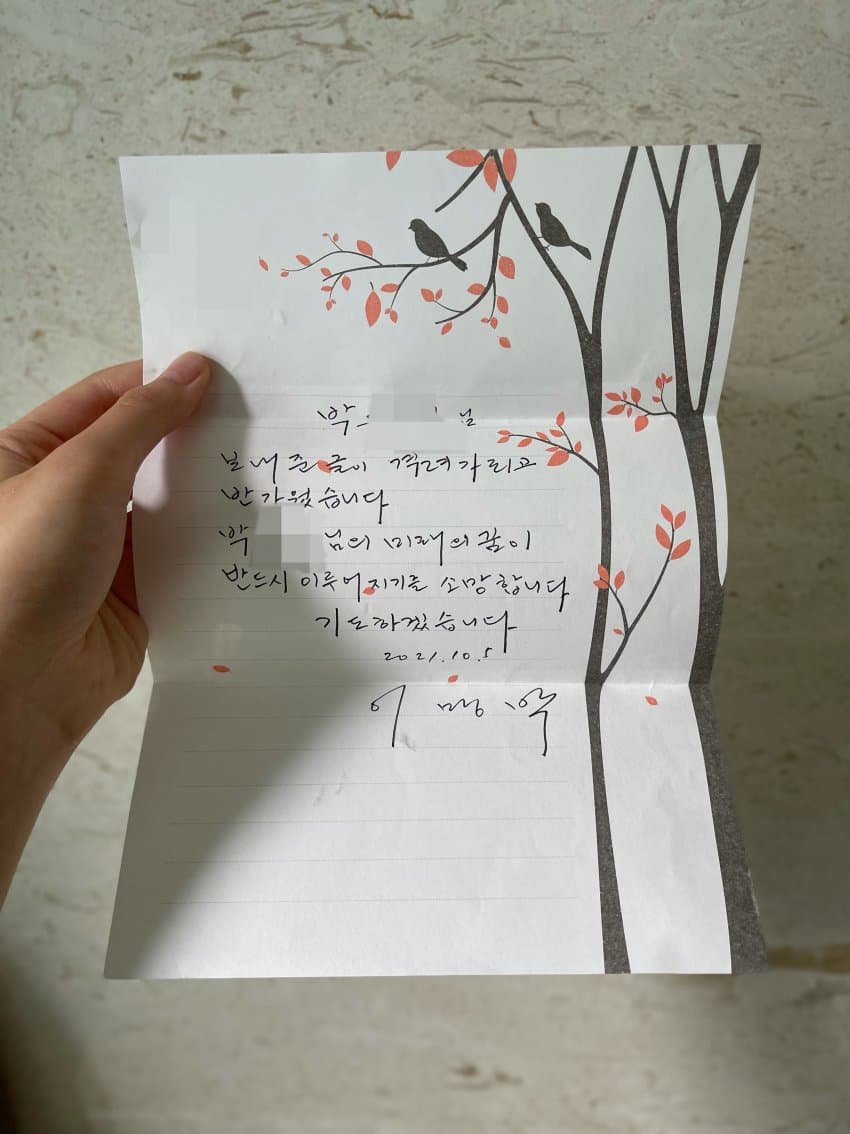 박 님
보내준 글이 격려가 되고
반가웠습니다
박 님의 미래의 꿈이
반드시 이루어지기를 소망합니다
기도하겠습니다
2021.10.5
이명박